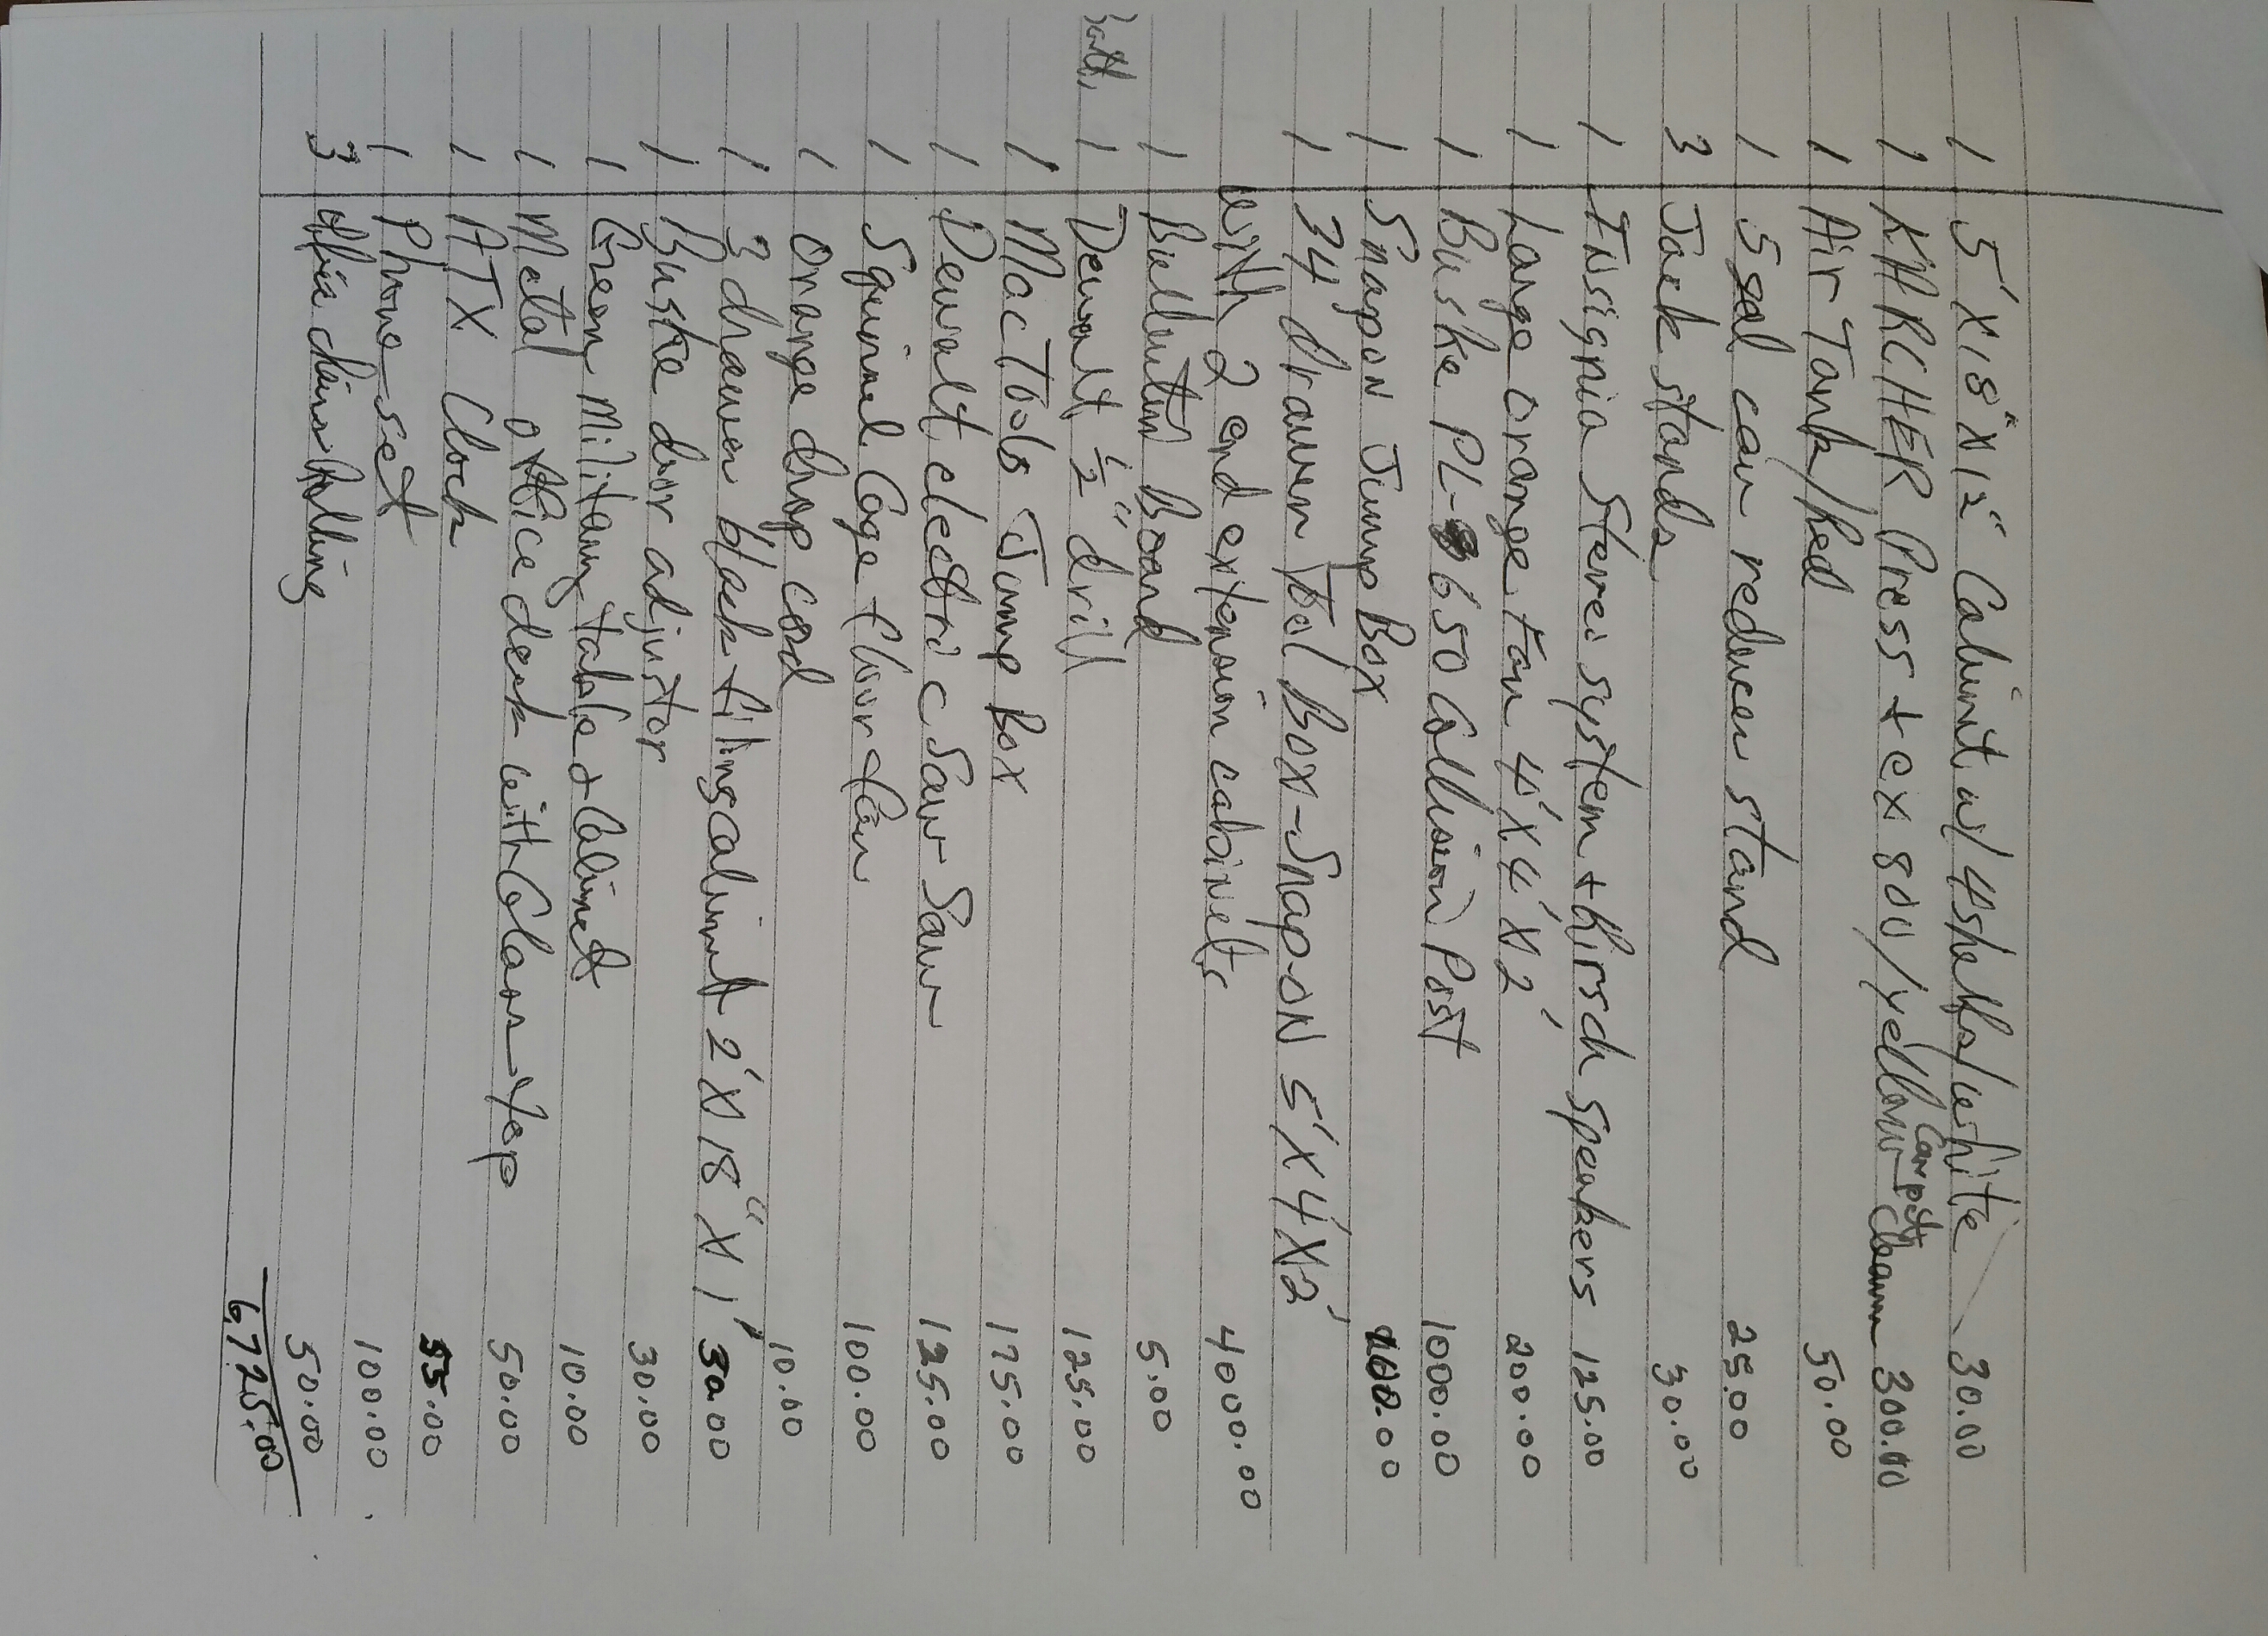 1 5' X 18" X 12" Cabinit w/ 4 shelfs/white 30.00
1 KHRCHER Press + ex 800/yellow Carpet Cleann 300.00
1 Air Tank/Red 50.00
1 5 gal can reducer stand 25.00
3 Jack stands 30.00
1 INsignia Stereo system + hirsch speakers 125.00
1 Large orange Fan 4' X 4' X 2' 200.00
1 Buske PL-8650 Collision Post 1000.00
1 Snapon Jump Box .00
1 34 drawer Tool Box-SnapoN 5' X 4' X 2'
with 2 end extension cabinets 4000.00
1 Bullentin Board 5.00
1 Dewalt 1/2" drill 125.00
1 Mac Tools Jump Box 175.00
1 Dewalt electric Saw Saw 125.00
1 Squirrel Cage floor fan 100.00
1 Orange drop cord 10.00
1 3 drawer black filing cabinet 2' X 18" X 1' 30.00
1 Buske door adjustor 30.00
1 Green Military table + Cabinet 10.00
1 Metal office desk with Glass top 50.00
1 ATX Clock 55.00
1 Phone set 100.00
3 office chairs 50.00
6,725.00